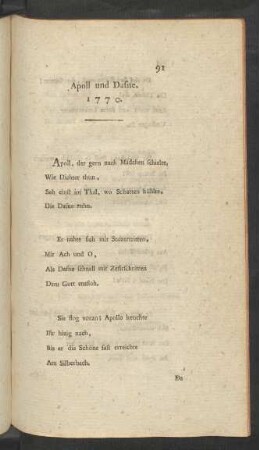 91
Apoll und Dafne.
1770.
Apoll, der gern nach Mädchen schielte,
Wie Dichter thun,
Sah einst im Thal, wo Schatten kühlte,
Die Dafne ruhn.
Er nahte sich mit Stutzertritten,
Mit Ach und O,
Als Dafne schnell mit Zefirschritten
Dem Gott entfloh.
Sie flog voran; Apollo keuchte
Ihr hitzig nach,
Bis er die Schöne fast erreichte
Am Silberbach.
Da